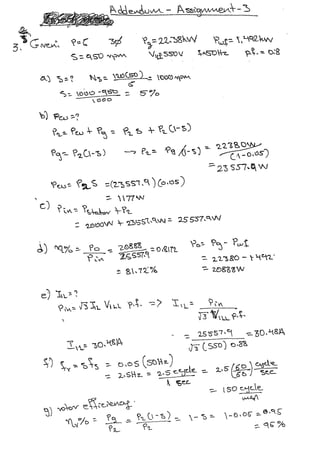 Addendum - Assignment-3
3. Given: P=6 3Φ Pg=22.38kW Pwf=1.492kW
S=950 rpm VLL=550V f=50Hz p.f.=0.8
a) S=? Ns= 120(50)/6 = 1000 rpm
S= 1000-950/1000 = 5%
b) Pcu=?
P2= Pcu + Pg = P2 S + P2 (1-S)
Pg= P2(1-S) → P2= Pg/(1-S) = 22380W/(1-0.05)
= 23557.9W
Pcu= P2 S =(23557.9)(0.05)
= 1177W
c) Pin= Pstator +P2
= 2000W + 23557.9W = 25557.9W
d) η%= Po/Pin = 20888/25557.9 =0.8172 Po= Pg - Pwf
= 22380 - 1492
= 81.72% = 20888W
e) IL=?
Pin= √3 IL VLL p.f. => IL= Pin/√3 VLL p.f.
IL= 30.48A = 25557.9/√3 (550) 0.88 =30.48A
f) fr= Sfs = 0.05 (50Hz)
= 2.5Hz = 2.5 cycle/1 sec = 2.5 (60/60) cycle/sec
= 150 cycle/min
g) rotor efficiency.
ηr%= Pg/P2 = P2(1-S)/P2 = 1-S = 1-0.05 =0.95
= 95%